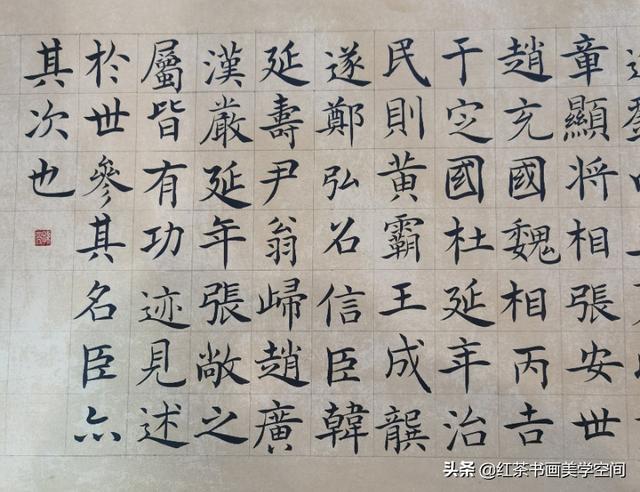 章顯将相張安世
趙充國魏相丙吉
于定國杜延年治
民則黄霸王成龔
遂鄭弘召信臣韓
延壽尹翁歸趙廣
漢嚴延年張敞之
屬皆有功迹見述
於世參其名臣亦
其次也
头条 @红茶书画美学空间